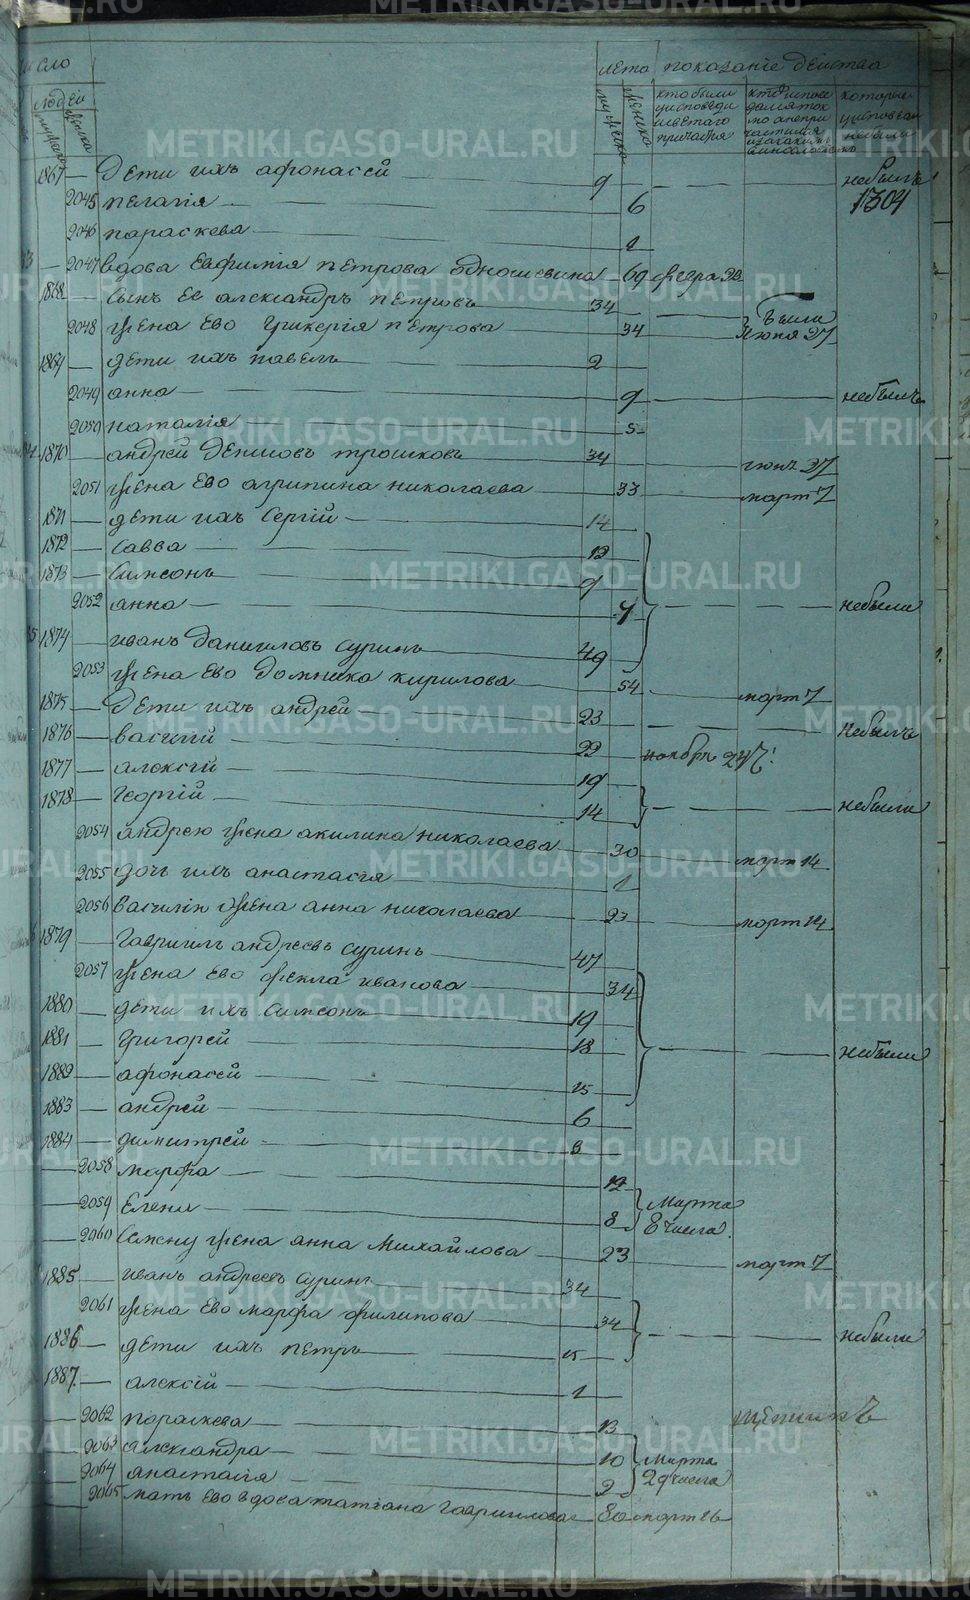 число
лета показаніе действа
людей
мужеска
женска
мужеска
женска
кто были
у исповеди
и светаго
причастия
которые
у исповеди
небыли
1867 — Дети ихъ афонасей — 9 — — — небылъ
2045 пелагія — 6 1304
2046 параскева — 1
— 2047 вдова евфимія петрова одношевина — 69 февра 23
1868 — сынъ ее александръ петровъ — 34
2048 жена ево гликерія петрова — 34 — были июня 27
1869 — дети ихъ павелъ — 2
2049 анна — 9 — — — небылъ
2050 наталія — 5
1870 — андрей Денисовъ трошковъ — 34 — июнь 27
2051 жена ево агрипина николаева — 33 — март 7
1871 — дети ихъ Сергій — 14
1872 — Савва — 12
1873 — Симеонъ — 9
2052 анна — 4 — — — небыли
1874 — иванъ Даниловъ суринъ — 49
2053 жена ево домника кирилова — 54 — март 7
1875 — Дети ихъ андрей — 23 — — небылъ
1876 — василій — 22 ноябрь 24
1877 — алексій — 19
1878 — Георгій — 14 — — небыли
2054 андрею жена акилина николаева — 30 — март 14
2055 дочь ихъ анастасія — 1
2056 василію жена анна николаева — 23 — март 14
1879 — Гавриилъ андреевъ суринъ — 47
2057 жена ево фекла иванова — 34
1880 — дети ихъ Симеонъ — 19
1881 — Григорей — 18 — — небыли
1882 — афонасей — 15
1883 — андрей — 6
1884 — димитрей — 3
— 2058 марфа — 12
— 2059 Елена — 8 Марта 8 числа
— 2060 Симену жена анна Михайлова — 23 — март 7
1885 — иванъ андреевъ суринъ — 34
2061 жена ево марфа филипова — 34
1886 — дети ихъ петръ — 15 — — небыли
1887 — алексій — 1
— 2062 параскева — 13
— 2063 александра — 10 Марта
— 2064 анастасія — 2 29 числа
— 2065 мать ево вдова татіана Гавриилова — 80 март 26
METRIKI.GASO-URAL.RU